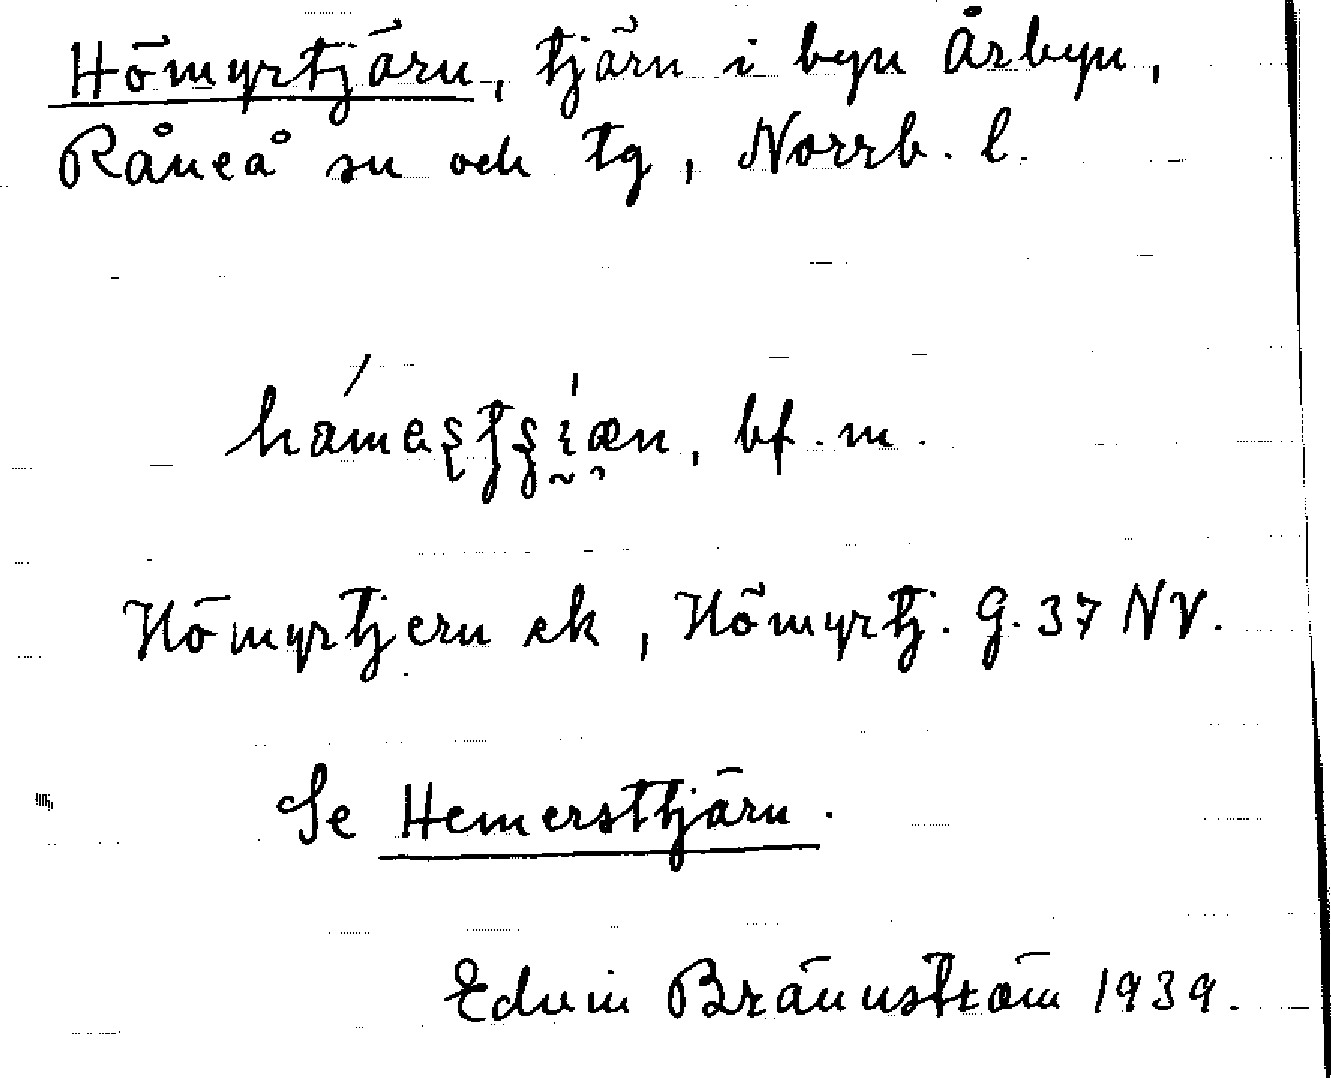 Hömyrtjärn, tjärn i byn Årbyn,
Råneå sn och tg, Norrb. l.
bf. m.
Hömyrtjern ek, Hömyrtj. G. 37 NV.
Se Hemersttjärn.
Edvin Brännström 1939.